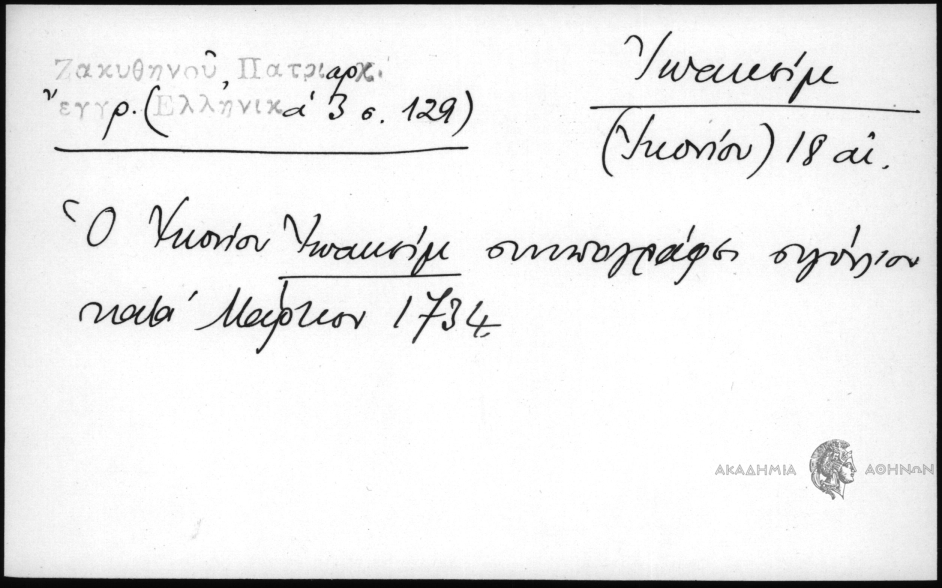 Ζακυθηνοῦ, Πατριαρχ.
ἔγγρ. (Ἑλληνικά 3 σ. 129)
Ἰωακείμ
(Ἰκονίου) 18 αἰ.
Ὁ Ἰκονίου Ἰωακείμ συνυπογράφει σιγίλλιον
κατά Μάρτιον 1734.
ΑΚΑΔΗΜΙΑ ΑΘΗΝΩΝ